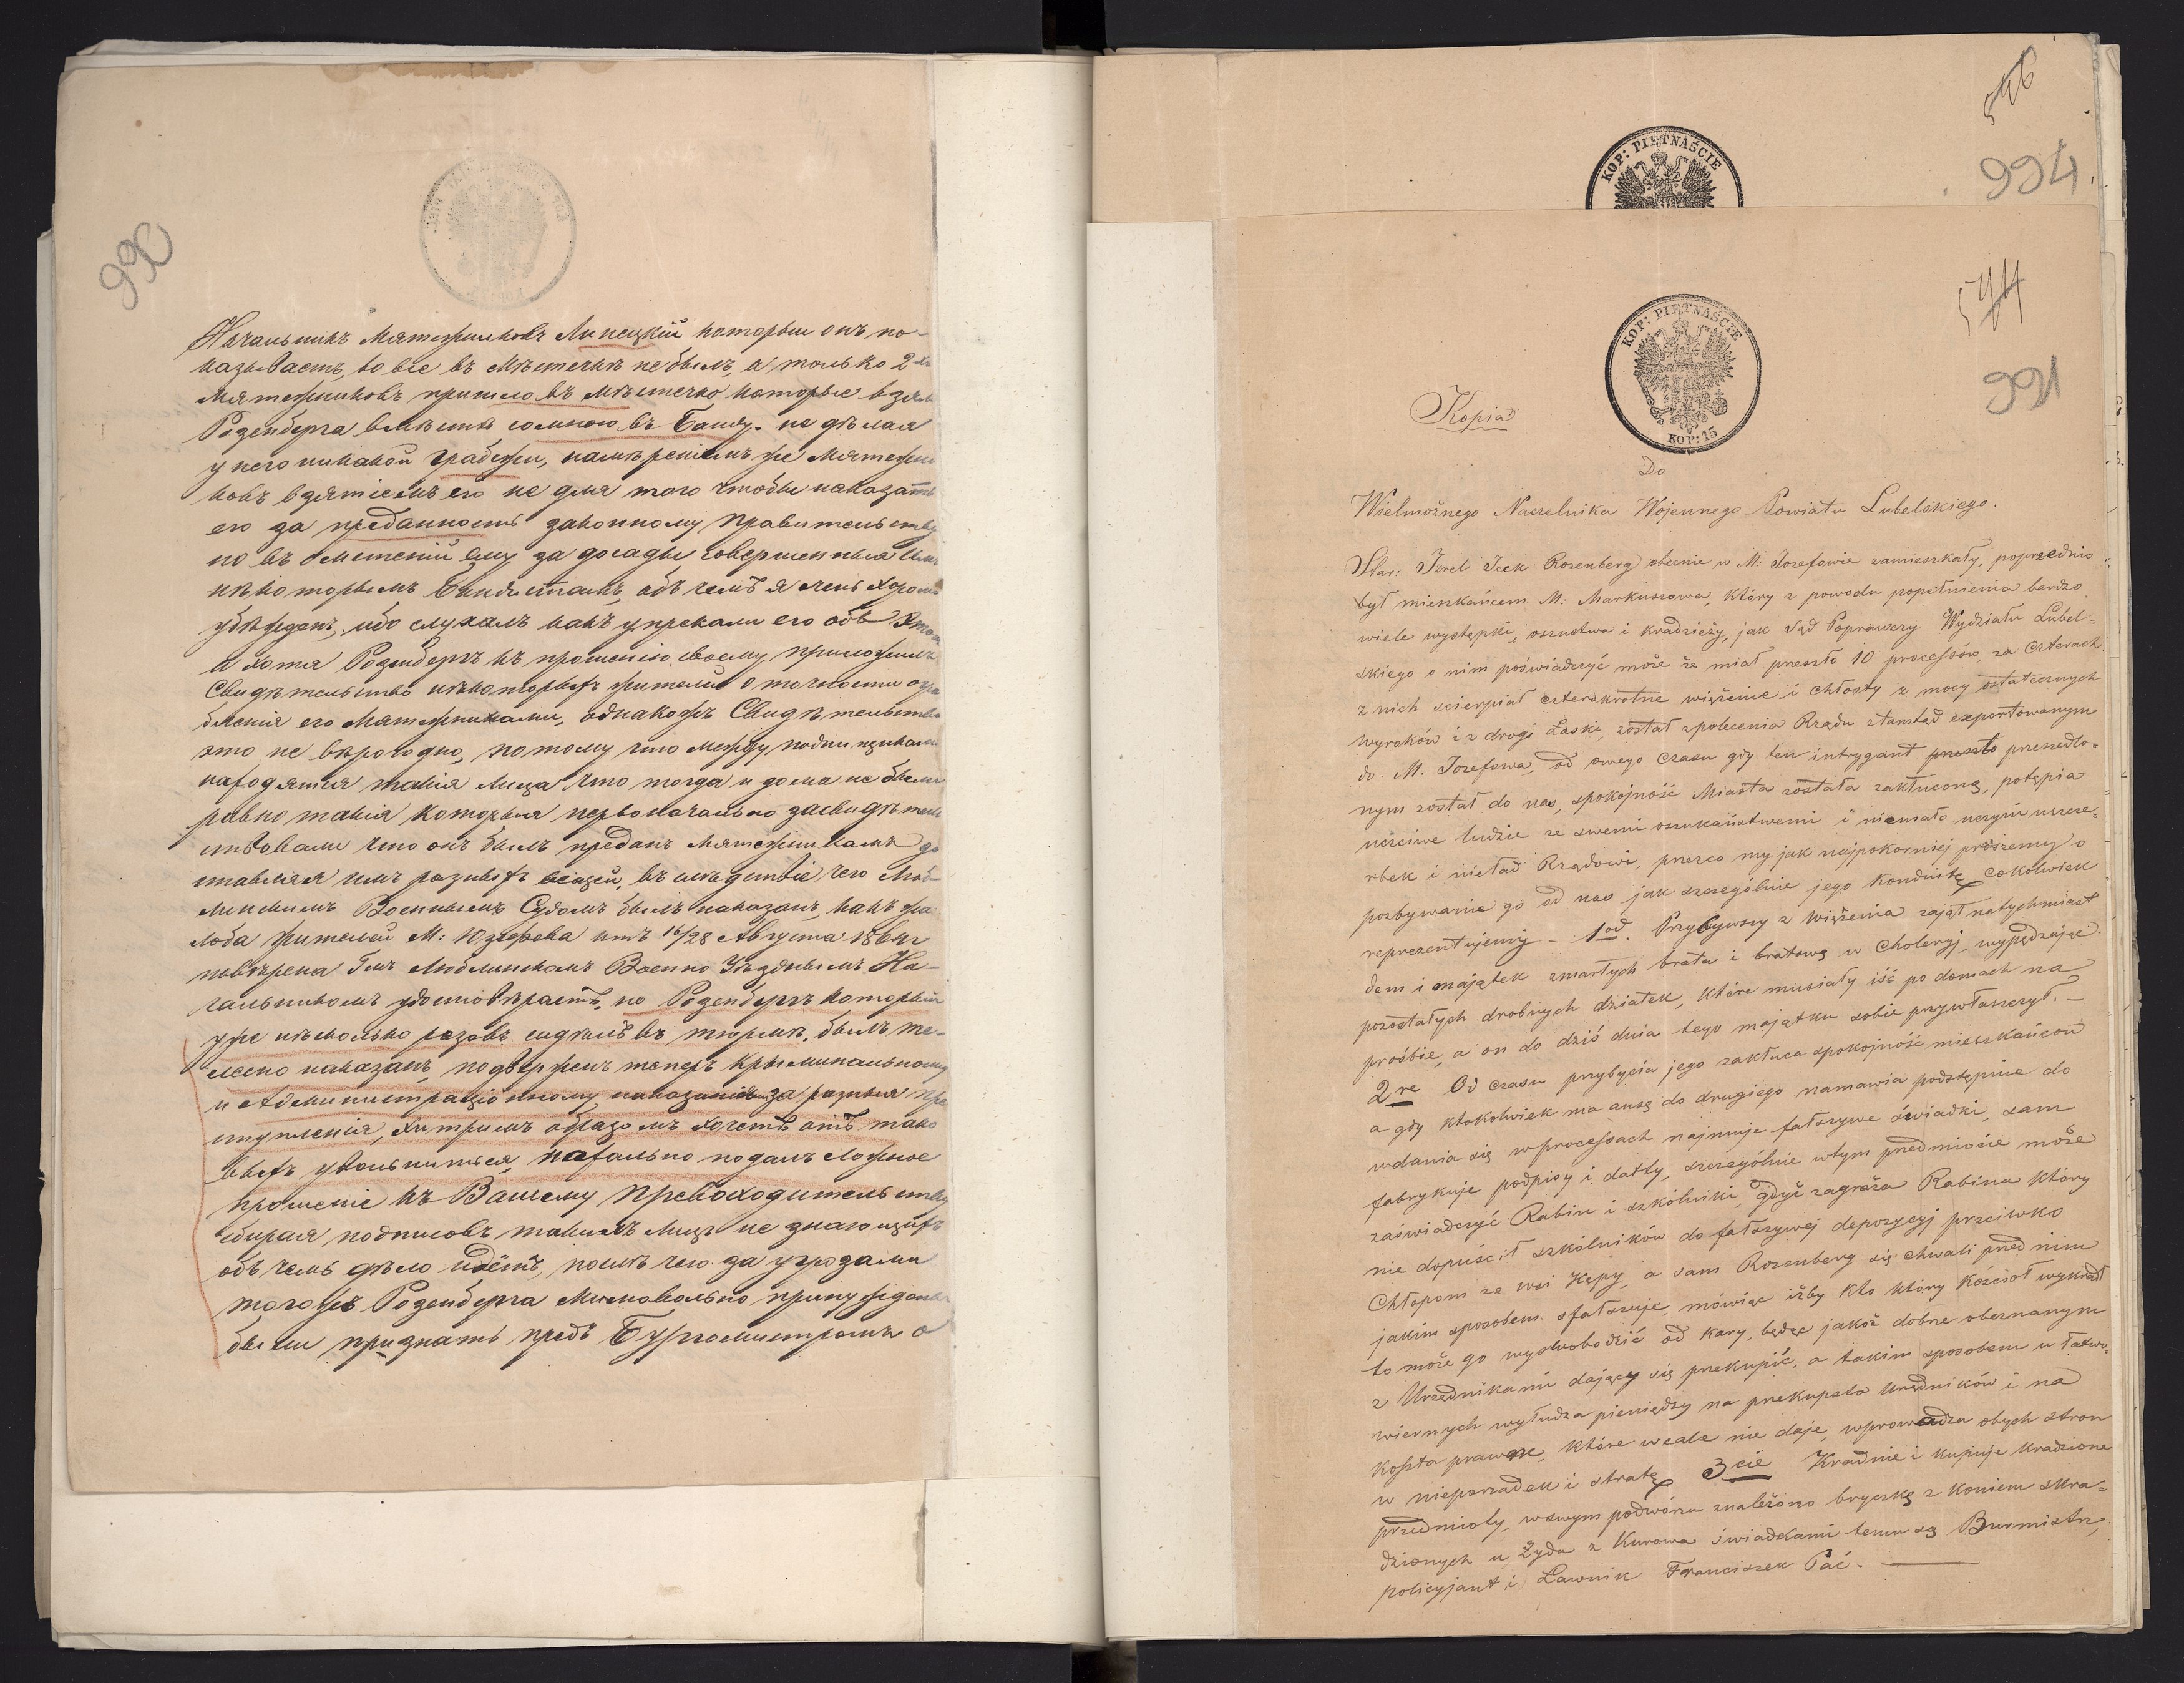 990
Начальникъ Мятежниковъ Липецкій который онъ по-
казываетъ, вовсе въ мѣстечкѣ не былъ, а только 2
Мятежниковъ пришло въ мѣстечко которые взяли
Розенберга вмѣстѣ со мною въ Банду. не дѣлая
у него никакой грабежи, намѣреніемъ же Мятежни
ковъ взятіемъ его не для того чтобы наказать
его за преданность законному Правительству
но въ отмщеній ему за досады совершенныя
нѣкоторымъ Бандистамъ, объ чемъ я очень хорошо
убѣжденъ, ибо слухалъ какъ упрекали его объ этомъ
и хотя Розенбергъ къ прошенію своему приложилъ
Свидѣтельство нѣкоторыхъ жителей о точности огра
бленія его Мятежниками, однакожъ Свидѣтельство
это не вѣрогодно, потому что между подписчиками
находятся такія Лица что тогда и дома не были
равно такія которыя первоначально засвидѣтель
ствовали что онъ былъ преданъ Мятежникамъ до
ставляя имъ разныхъ вещей, въ слѣдствіе чего Люб-
линскимъ Военнымъ Судомъ былъ наказанъ, какъ жа
лоба жителей М: Юзефова отъ 16/28 Августа 1864 г
повѣрена Гмъ Люблинскимъ Военно Уѣзднымъ На-
чальникомъ удостовѣряетъ, но Розенбергъ который
уже нѣсколько разовъ сидѣлъ въ тюрмѣ, былъ тѣ-
лесно наказанъ, подверженъ теперъ Крыминальному
и Административному наказанію за разныя пре
ступленія, хитримъ образомъ хочетъ отъ тако
выхъ увольниться, нахально подалъ Ложное
прошеніе къ Вашему Превоходительству
сбирая подписовъ такихъ лицъ не знающихъ
объ чемъ дѣло идётъ, послѣ чего за угрозами
тогожъ Розенберга Мимовольно принуждены
были признать предъ Бургомистромъ о
546
994.
KOP: PIĘTNAŚCIE
544
991
KOP: PIĘTNAŚCIE
KOP: 15
Kopia
Do
Wielmożnego Naczelnika Wojennego Powiatu Lubelskiego.
Star: Izrel Icek Rosenberg obecnie w M: Jozefowie zamieszkały, poprzednio
był mieszkańcem M: Markuszowa, który z powodu popełnienia bardzo
wiele występki, oszustwa i kradzieży, jak Sąd Poprawczy Wydziału Lubel=
skiego o nim poświadczyć może że miał przeszło 10 processów, za czterech
z nich scierpiał czterokrotne więzienie i chłosty z mocy ostatecznych
wyroków i z drogi Łaski, został z polecenia Rządu ztamtąd exportowanym
do M. Jozefowa, od owego czasu gdy ten intrygant przeszło przesiedlo=
nym został do nas, spokojność Miasta została zakłuconą, potępia
uczciwe ludzie ze swemi oszukaństwemi i niemało uczyni uszcze=
rbek i nieład Rządowi, przezco my jak najpokorniej prosiemy o
pozbywanie go od nas jak szczególnie jego Konduitę cokolwiek
reprezentujemy - 1od. Przybywszy z więzienia zajął natychmiast
dom i majątek zmarłych brata i bratową w Choleryj, wypędzając
pozostałych drobnych dziatek, które musiały iść po domach na
prośbie, a on do dziś dnia tego majątku sobie przywłaszczył. -
2re Od czasu przybycia jego zakłuca spokojność mieszkańców
a gdy ktokolwiek ma ansę do drugiego namawia podstępnie do
wdania się w processach najmuje fałszywe świadki, sam
fabrykuje podpisy i datty, szczególnie w tym przedmiocie może
zaświadczyć Rabin i szkólniki, gdyż zagraża Rabina który
nie dopuścił szkólników do fałszywej depozycyj przeciwko
Chłopom ze wsi Kępy, a sam Rosenberg się chwali przed nim
jakim sposobem sfałszuje, mówiąc iżby kto który Kościoł wykradł
to może go wyswobodzić od kary, będąc jakoż dobrze obeznanym
z Urzędnikami dający się przekupić, a takim sposobem u łatwo=
wiernych wyłudza pieniędzy na przekupsto Urzędników i na
koszta prawne, które wcale nie daje, wprowadza obych stron
w nieporządek i stratę 3cie Kradnie i kupuje Kradzione
przedmioty, w swym podwórzu znależiono bryczkę z koniem skra=
dzionych u Żyda z Kurowa świadkami temu są Burmistrz,
policyjant i Ławnik Franciszek Pać. -